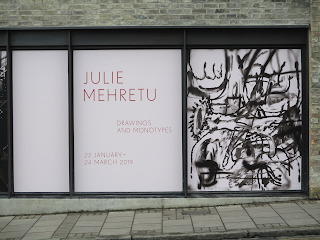 JULIE
MEHRETU
DRAWINGS
AND MONOTYPES
22 JANUARY–
24 MARCH 2019